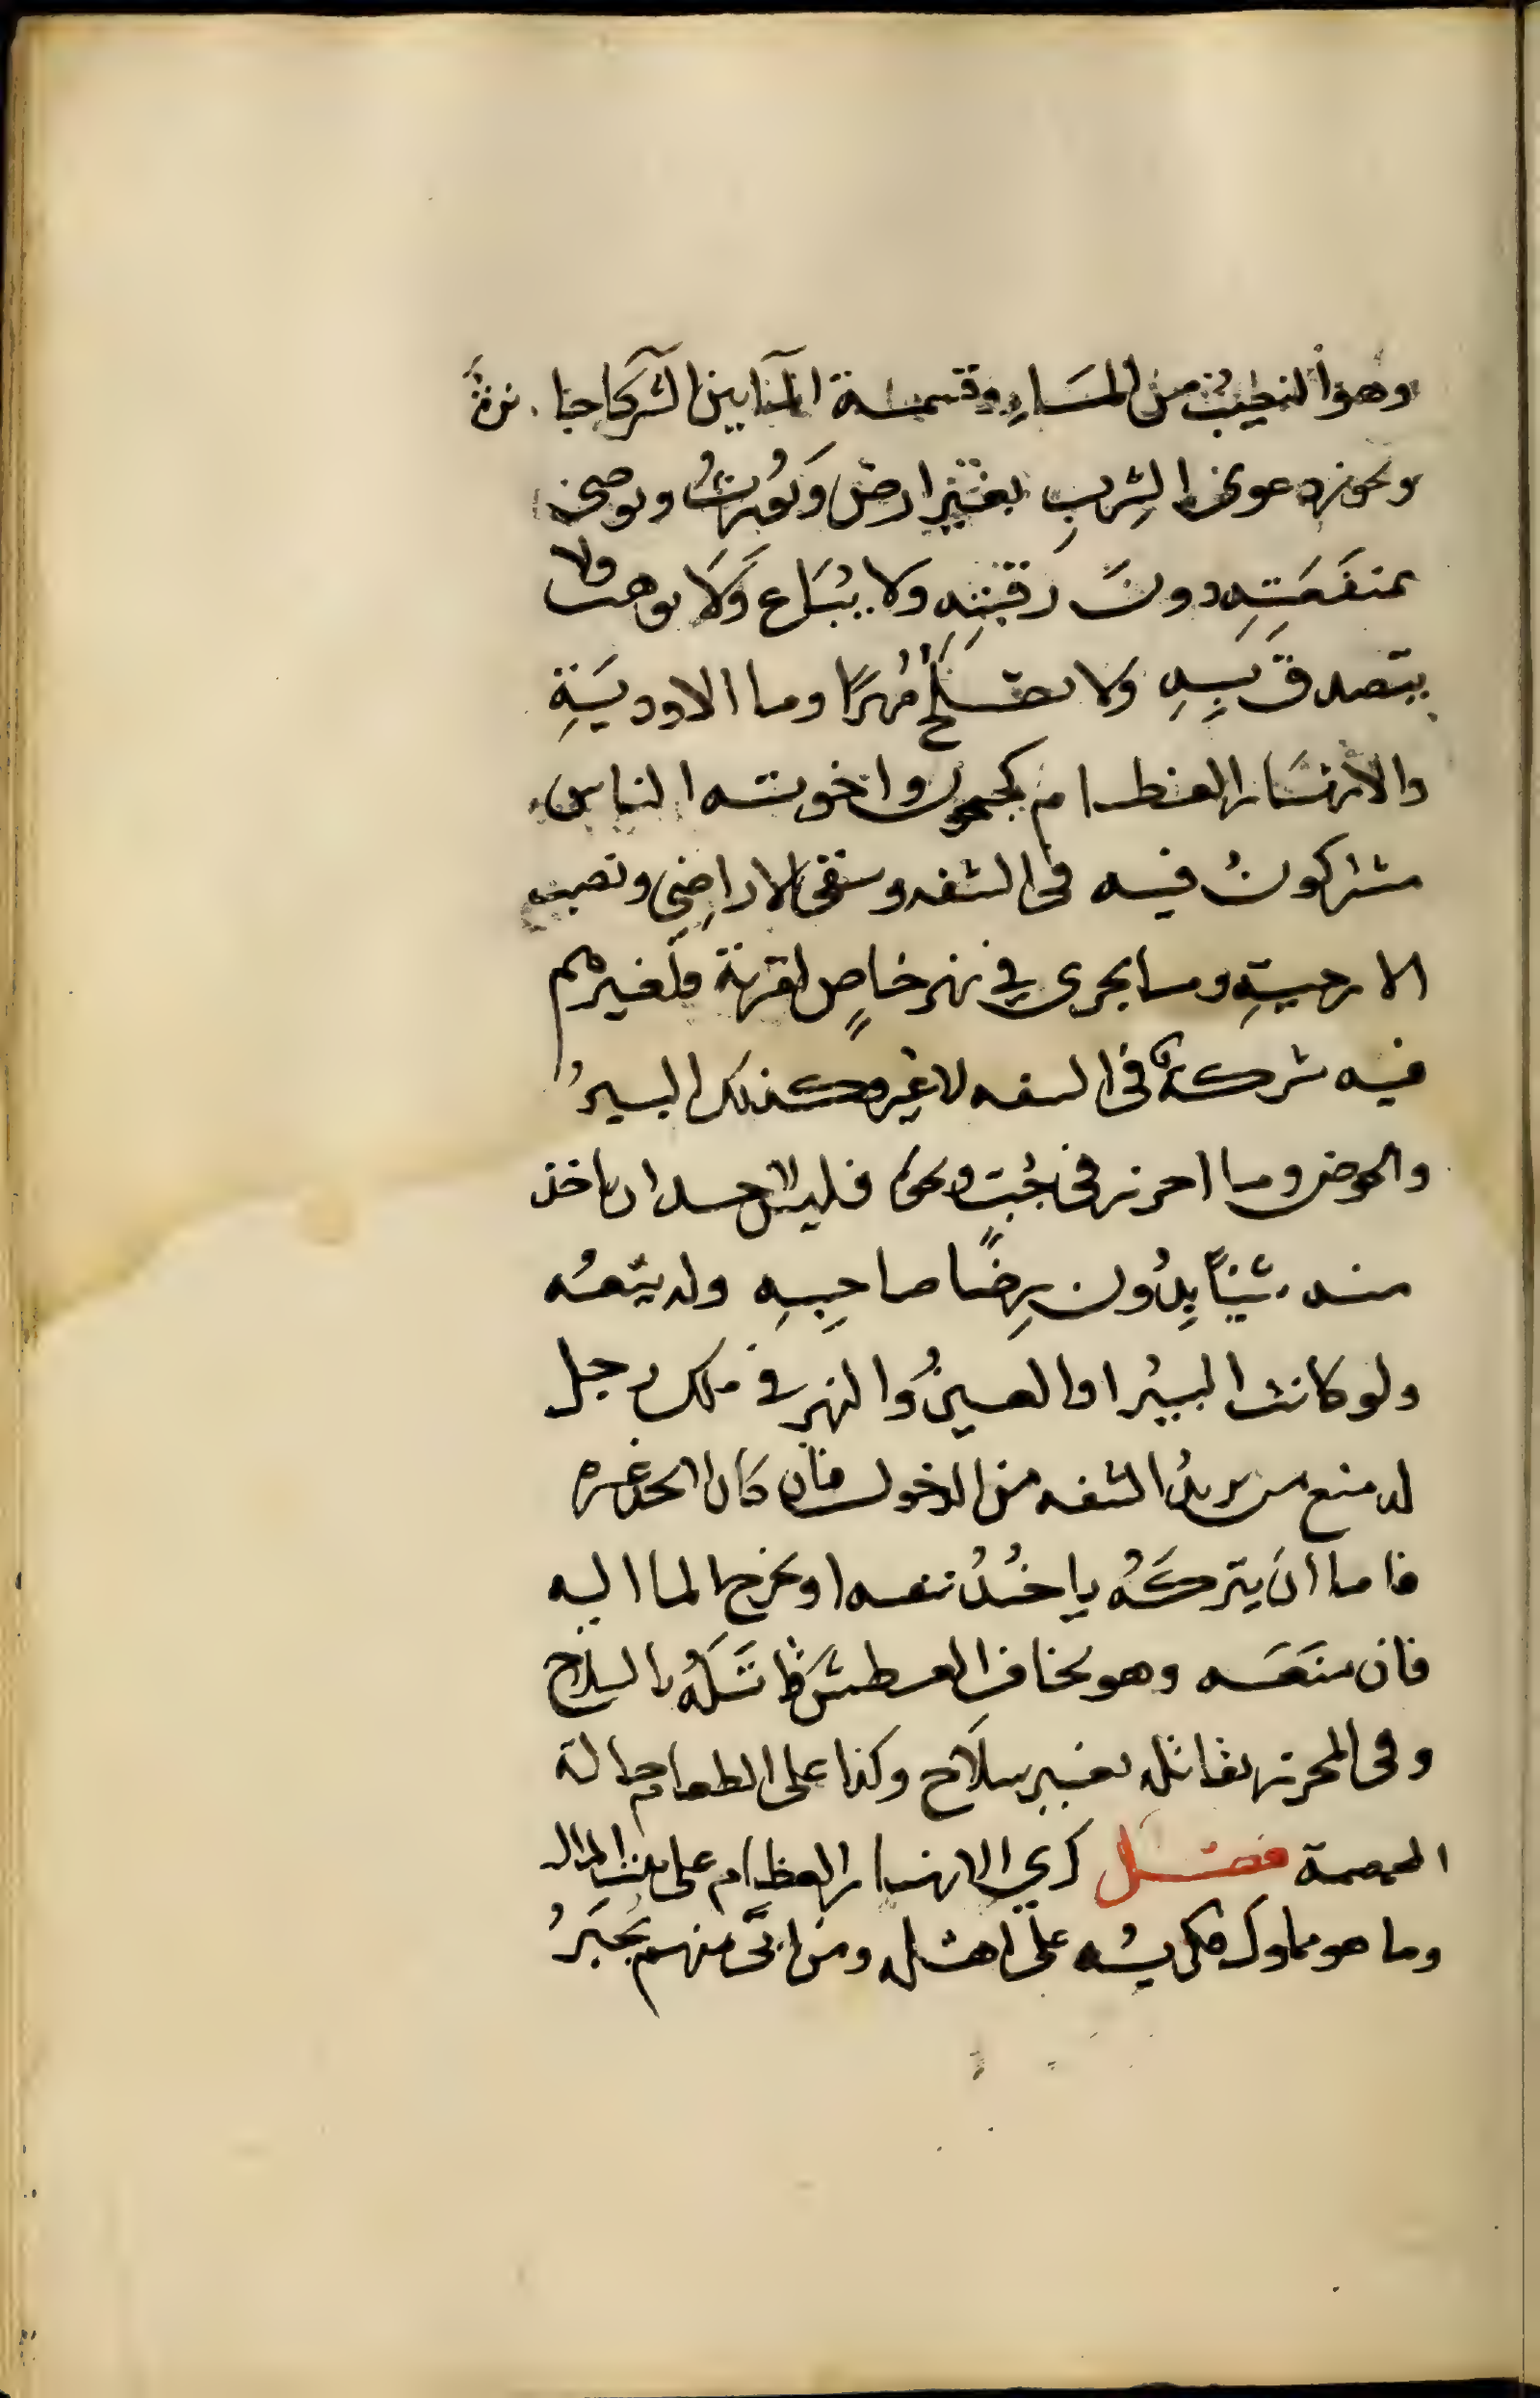 وهو النصيب من الماء وقسمة الما بين الشركا جايزة
ويجوز دعوى الشرب بغير ارض ويورث ويوصى
بمنفعته دون رقبته ولا يباع ولا يوهب ولا
يتصدق به ولا يصلح مهرا وما الاودية
والانهار العظام كجيحون واخوته الناس
مشتركون فيه في الشفه وسقي الاراضي ونصب
الارحية وما يجري في نهر خاص لقرية فلغيرهم
فيه شركة في الشفه لا غير وكذلك البير
والحوض وما احرز في جب ونحوه فليس لاحد ان ياخذ
منه شيئا بدون رضا صاحبه وله بيعه
ولو كانت البير او العين او النهر في ملك رجل
له منع من يريد الشفه من الدخول فان كان لا يجد غيره
فاما ان يتركه ياخذ بنفسه او يخرج الما اليه
فان منعه وهو يخاف العطش قاتله بالسلاح
وفي المحرز يقاتله بغير سلاح وكذا على الطعام حالة
المخمصة فصل كري الانهار العظام على بيت المال
وما هو مملوك فكريه على اهله ومن ابى منهم يجبر